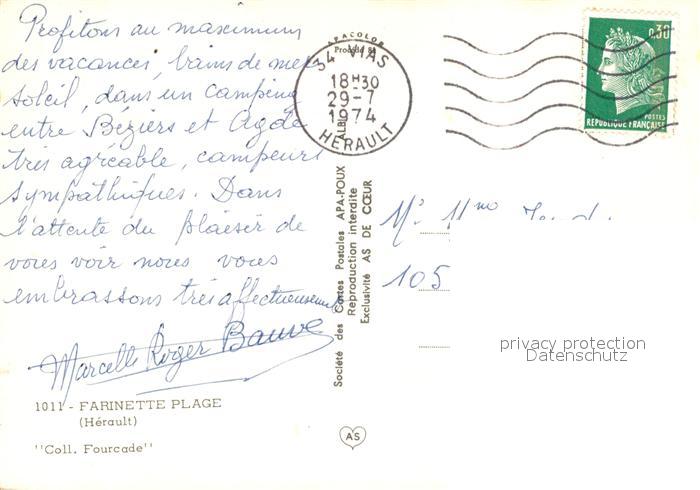 Profitons au maximum
des vacances, bains de mer
soleil, dans un camping
entre Béziers et Agde
très agréable, campeurs
sympathiques. Dans
l'attente du plaisir de
vous voir nous vous
embrassons très affectueusement
Marcelle Roger Bauve
1011 - FARINETTE PLAGE
(Hérault)
"Coll. Fourcade"
APACOLOR
Procédé
34 VIAS
18H30
29-7
1974
HÉRAULT
ALBI
Société des Cartes Postales APA-POUX
Reproduction interdite
Exclusivité AS DE CŒUR
AS
0,30
POSTES
REPUBLIQUE FRANÇAISE
105
privacy protection
Datenschutz